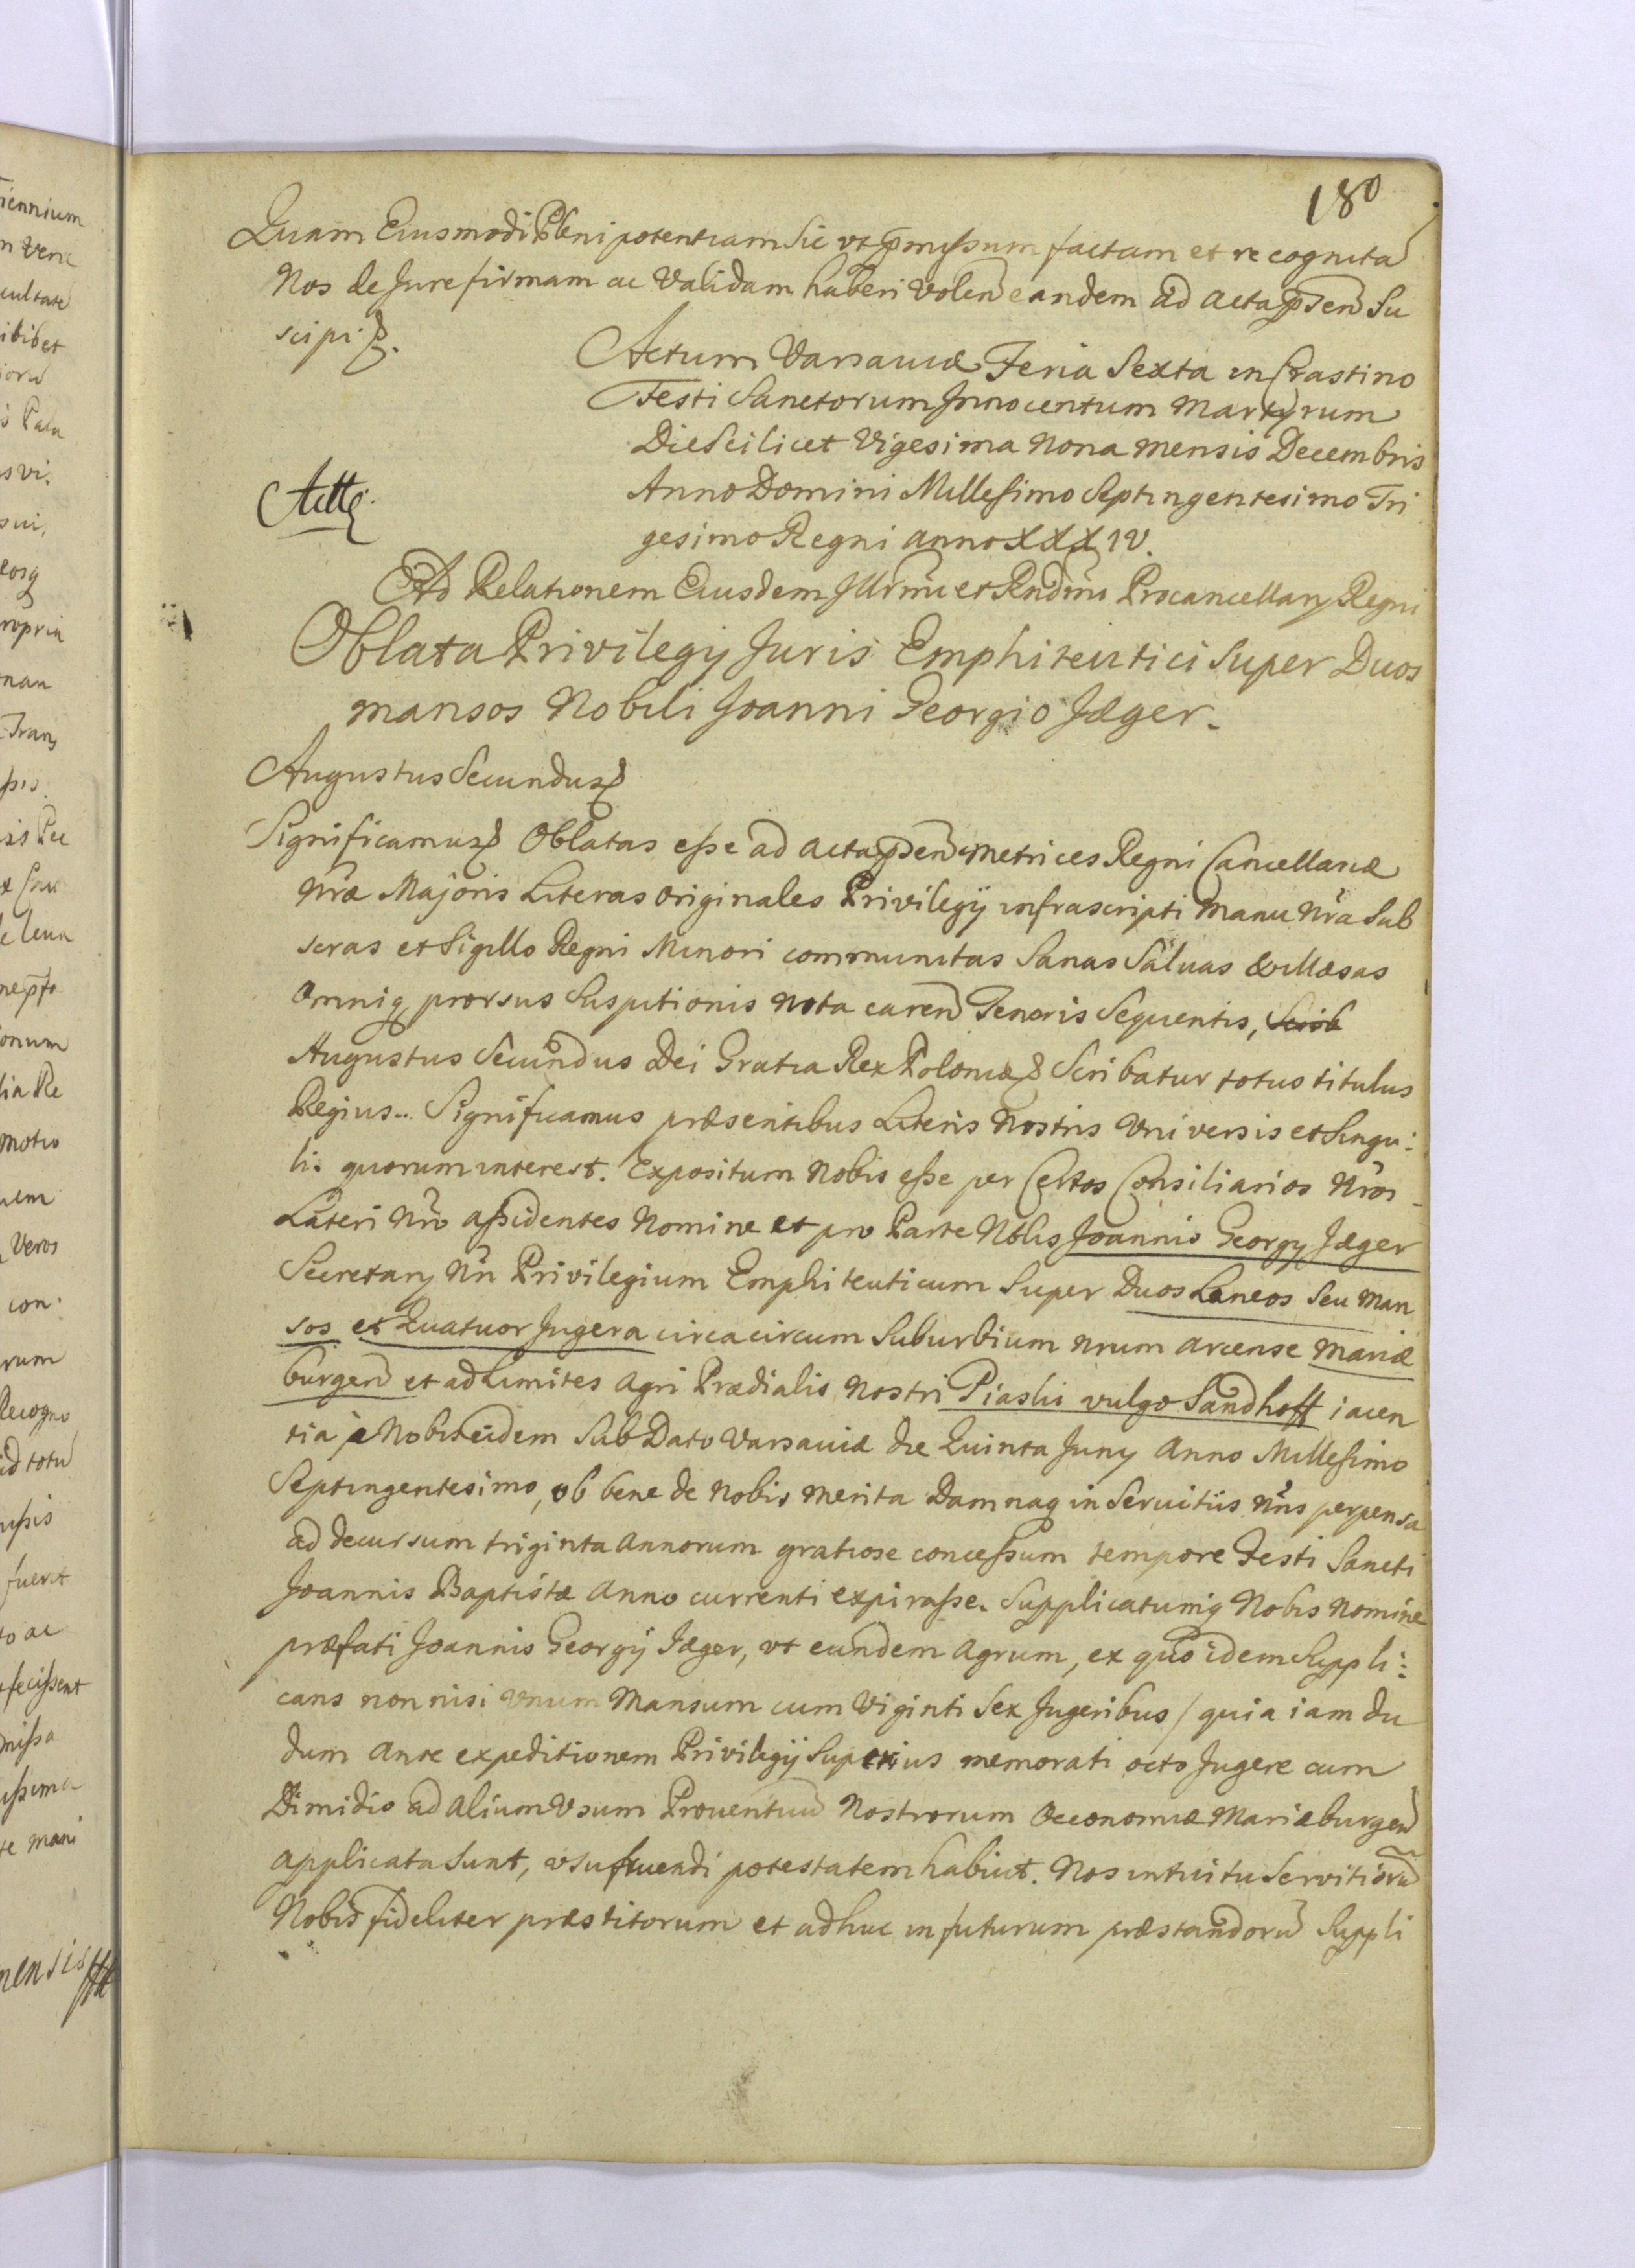 180
Quam Eiusmodi Plenipotentiam Sic vt p̄missum factam et recognitã
Nos de Jure firmam ac Validam haberi Volen̄ eandem ad acta p̄sen̄ Su
scipi &.
Actum Varsaviæ Feria Sexta in Crastino
Festi Sanctorum Innocentum Martyrum
Die Scilicet Vigesima Nona Mensis Decembris
Anno Domini Millesimo Septingentesimo Tri
gesimo Regni anno XXXIV.
Ad Relationem Eiusdem Illrm̄i et Rndm̄i Procancellarij Regni
Oblata Privilegij Juris Emphiteutici Super Duos
mansos Nobili Joanni Georgio Jæger.
Augustus Secundus &
Significamus & Oblatas esse ad acta p̄sen̄ Metrices Regni Cancellariæ
Nr̄æ Majoris Literas originales Privilegij infrascripti Manu Nr̄a Sub
scras et Sigillo Regni Minori communitas Sanas Saluas & illæsas
omniq prorsus Suspitionis Nota caren̄ Tenoris Sequentis, Scrib
Augustus Secundus Dei Gratia Rex Poloniæ & Scribatur totus titulus
Regius.. Significamus præsentibus Literis Nostris Vniversis et Singu:
lis quorum interest. Expositum Nobis esse per Certos Consiliarios Nr̄os
Lateri Nr̄o assidentes Nomine et pro Parte Nblis Joannis Georgij Jæger
Secretarij Nr̄i Privilegium Emphiteuticum Super Duos Laneos Seu Man
sos et Quatuor Jugera circacircum Suburbium Nrum arcense Mariæ
burgen̄ et ad Limites Agri Prædialis Nostri Piaski vulgo Sandhoff iacen
tia à Nobis eidem Sub Dato Varsaviæ die Quinta Junij Anno Millesimo
Septingentesimo, ob bene de Nobis Merita Damnaq in Servitiis Nr̄is perpensa
ad decursum triginta Annorum gratiose concessum tempore Festi Sancti
Joannis Baptistæ Anno currenti expirasse. Supplicatumq Nobis Nomine
præfati Joannis Georgij Jæger, vt eundem Agrum, ex quo idem Suppli:
cans non nisi Vnum Mansum cum Viginti Sex Jugeribus / quia iam du
dum Ante expeditionem Privilegij Superius memorati octo Jugere cum
Dimidio ad Alium Vsum Prouentuũ Nostrorum Oeconomiæ Mariæburgen̄
applicata Sunt, vsufruendi potestatem habuit. Nos intuitu Servitiorũ
Nobis fideliter præstitorum et adhuc in futurum præstandorũ Suppli